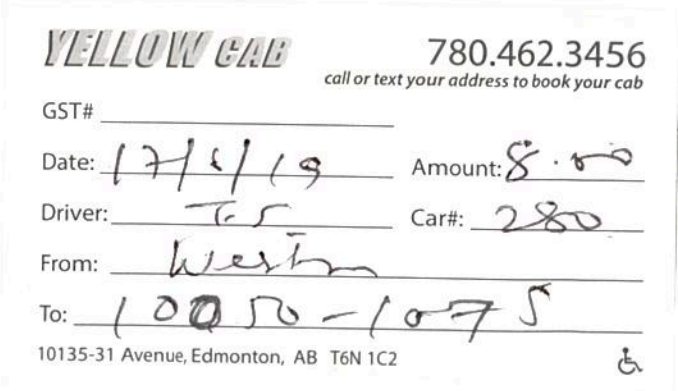 YELLOW CAB
780.462.3456
call or text your address to book your cab
GST#
Date: 17/6/19 Amount: 8.00
Driver: Car#: 280
From: Westin
To: 10050-107 S
10135-31 Avenue, Edmonton, AB T6N 1C2